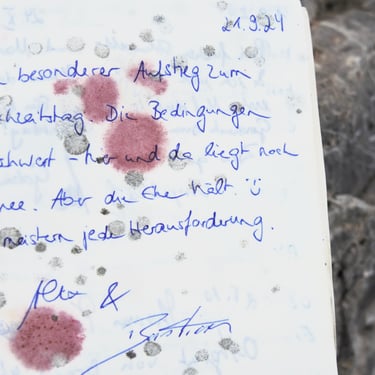 21.9.24
besonderer Aufstieg zum
chzeitstag. Die Bedingungen
chwert - hier und da liegt noch
nee. Aber die Ehe hält.
meistern jede Herausforderung.
&
Bastian